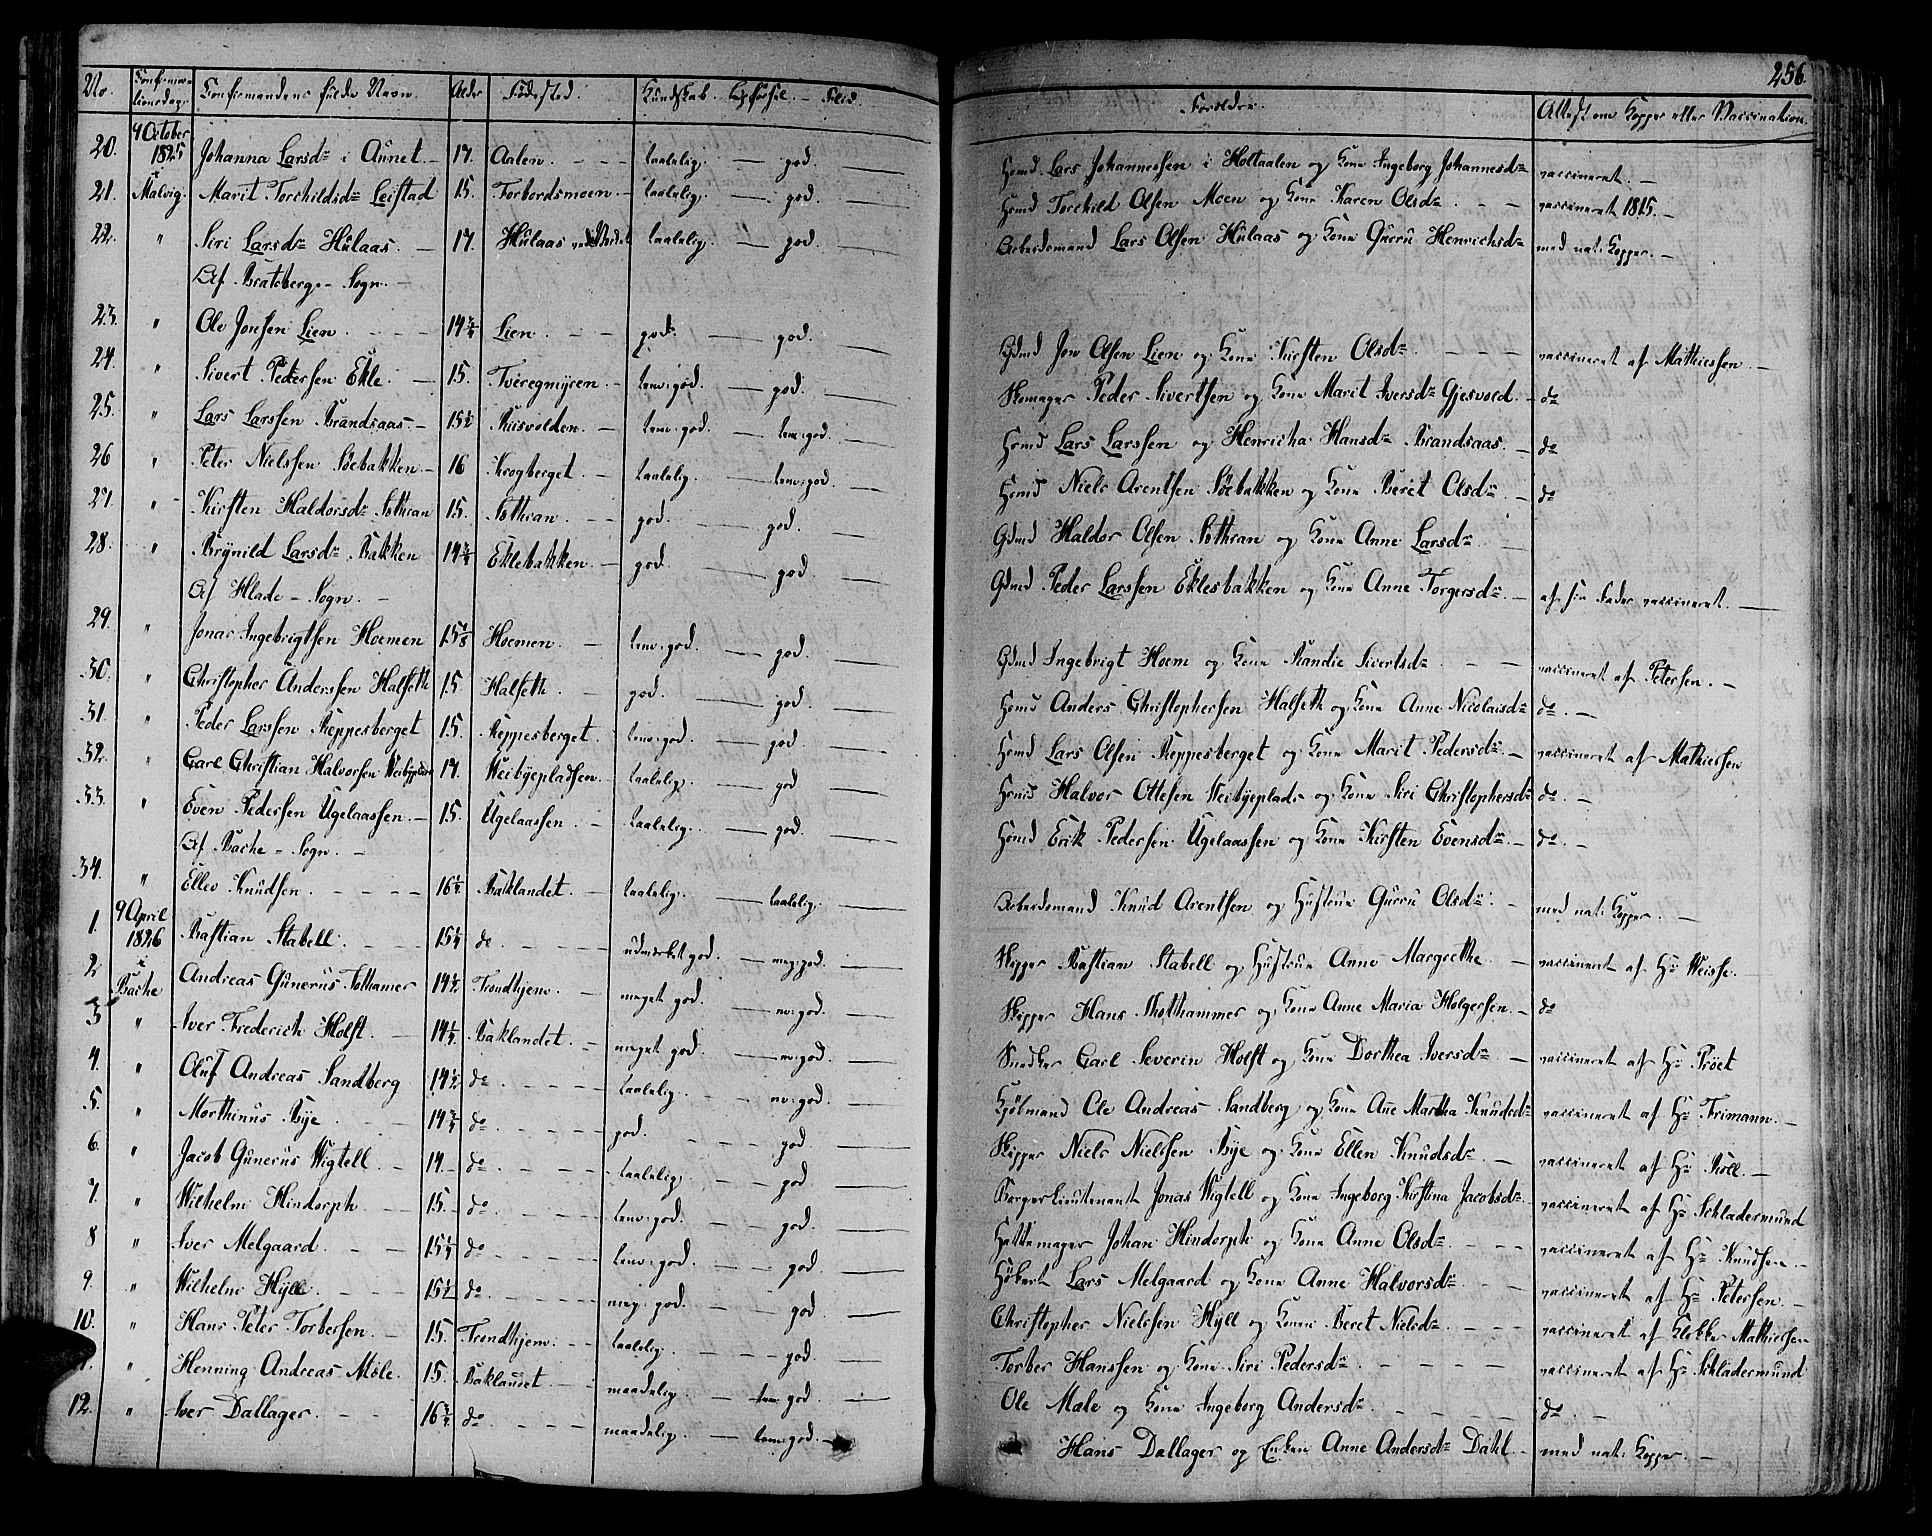 256
No. Confirmationsdag. Confirmandens fulde Navn. Alder Fødested. Kundskab. Opførsel. Flid. Forældre. Attest om Kopper eller Vaccination.
20. 9 October 1825 Johanna Larsdr i Aunet. 17. Aalen. taalelig. god. Hmd. Lars Johannessen i Holtaalen og Kone Ingeborg Johannesdr vaccineret.
21. i Malvig. Marit Torchildsdr Leistad 15. Torbordsmoen. taalelig. god. Hmd Torchild Olsen Moen og Kone Karen Olsdr vaccineret 1815.
22. " Siri Larsdr Hulaas. 17. Hulaas taalelig. god. Arbeidsmand Lars Olsen Hulaas og Kone Gurru Henrichsdr med nat: Kopper.
Af Bratsberg-Sogn.
23. " Ole Jonsen Lien. 14 3/4 Lien. god. god. Gdmd Jon Olsen Lien og Kone Kirsten Olsdr vaccineret af Mathiessen.
24. " Sivert Pedersen Ekle. 15. Tveregmyren. temº: god. god. Skomager Peder Sivertsen og Kone Marit Iversdr Gjesvold. do
25. " Lars Larssen Brandsaas. 15 1/2 Kuisvolden. temº: god. temº: god. Hmd Lars Larssen og Henricha Hansdr Brandsaas. do
26 " Peter Nielssen Søebakken. 16 Krogberget. taalelig. temº: god. Hmd Niels Arentsen Søebakken og Kone Beret Olsdr do
27. " Kirsten Haldorsdr Sothran 15. Sothran. god. god. Gdmd Haldor Olsen Sothran og Kone Anne Larsdr
28. " Brynild Larsdr Bakken 14 3/4 Eklebakken. god. god. Gdmd Peder Larssen Eklesbakken og Kone Anne Torgersdr af sin Fader vaccineret.
Af Hlade-Sogn.
29. " Jonas Ingebrigtsen Hoemen 15 Hoemen. temº: god. god. Gdmd Ingebrigt Hoem og Kone Randie Sivertsdr vaccineret af Petersen.
30. " Christopher Anderssen Halseth 15 Halseth. god. god. Hmd Anders Christophersen Halseth og Kone Anne Nicolaisdr do.
31. " Peder Larssen Reppesberget 15. Reppesberget. temº: god. god. Hmd Lars Olsen Reppesberget og Kone Marit Pedersdr. vaccineret af Mathiessen
32. " Carl Christian Halvorsen Weibyplads 17. Weibyepladsen. taalelig. god Hmd Halvor Ottesen Weibyeplads og Kone Siri Christophersdr do.
33. " Even Pedersen Ugelaassen. 15. Ugelaassen. taalelig. god. Hmd Erik Pedersen Ugelaassen og Kone Kirsten Evensdr. do.
Af Bache-Sogn.
34. " Ellev Knudsen. 16 1/2 Baklandet. taalelig. taalelig. Arbeidsmand Knud Arentsen og Hustrue Gurru Olsdr. med nat: Kopper.
1. 9 April 1826 Bastian Stabell. 15 1/4 do. udmærket god. meg: god. Skipper Bastian Stabell og Hustrue Anne Margrethe vaccineret af Hr Weisse.
2 i Bache Andreas Gunerus Tothamer 14 1/2 Trondhjem. meget god. m: god. Skipper Hans Thothammer og Kone Anne Maria Holgersen. do
3 " Iver Frederich Holst. 14 1/2 Baklandet. meget god. m: god. Snedker Carl Severin Holst og Kone Dorthea Iversdr. vaccineret af Hr Pröet
4. " Oluf Andreas Sandberg 14 1/2 do. taalelig. m: god. Ole Andreas Sandberg og Kone Ane Martha Knudsdr vaccineret af Hr Frimann.
5. " Morthinus Bye 14 3/4 do. god. god Skipper Niels Nielsen Bye og Kone Ellen Knudsdr. vaccineret af Hr Roll.
6. " Jacob Gunerus Wigtell. 14. do. taalelig. god BorgerLieutenant Jonas Wigtell og Kone Ingeborg Kirstina Jacobsdr. vaccineret af Hr Schladermund
7. " Wilhelm Hindorph 15. do. temº: god. god. Hattemager Johan Hindorph og Kone Anne Olsdr. vaccineret af Hr Knudsen.
8 " Iver Melgaard. 15 1/4 do. temº: god. god. Høkert Lars Melgaard og Kone Anne Halvorsdr vaccineret af Hr Petersen.
9. " Wilhelm Hyll. 15 1/2 do. meg: god. god Christopher Nielsen Hyll og Kone Beret Nielsdr. vaccineret af Klokker Mathiessen
10. " Hans Peter Torbersen. 15. Trondhjem. taalelig. god. Torber Hanssen og Kone Siri Pedersdr vaccineret af Hr Schladermund
11. " Henning Andreas Möle. 15. Baklandet. maadelig. god Ole Male og Kone Ingeborg Andersdr. do.
12. " Iver Dallager. 16 3/4 do maadelig. temº: god. Hans Dallager og Enken Anne Andersdr Dahl. med nat: Kopper.